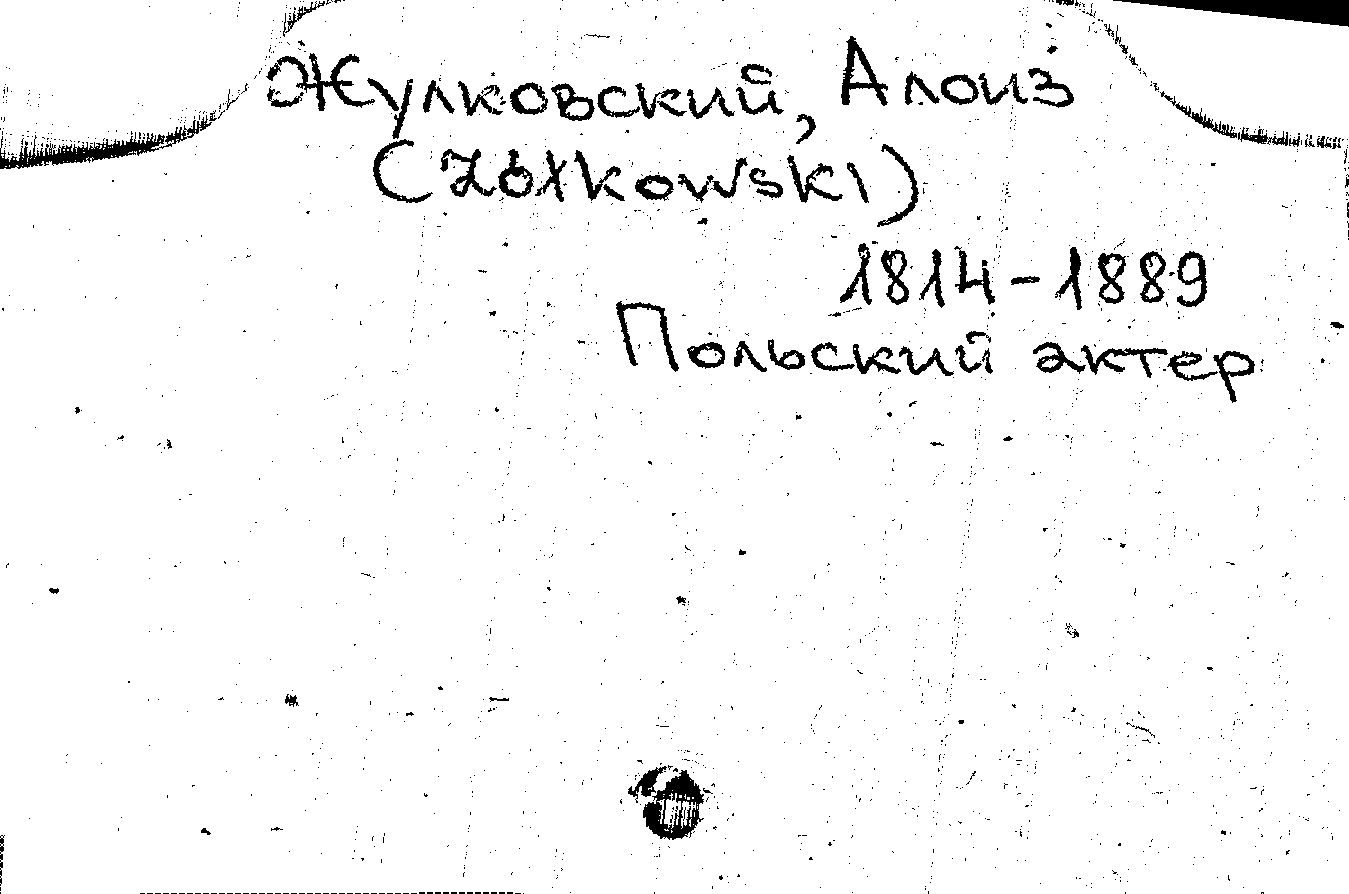 Жулковский, Алоиз
(Żółkowski)
1814-1889
Польский актер